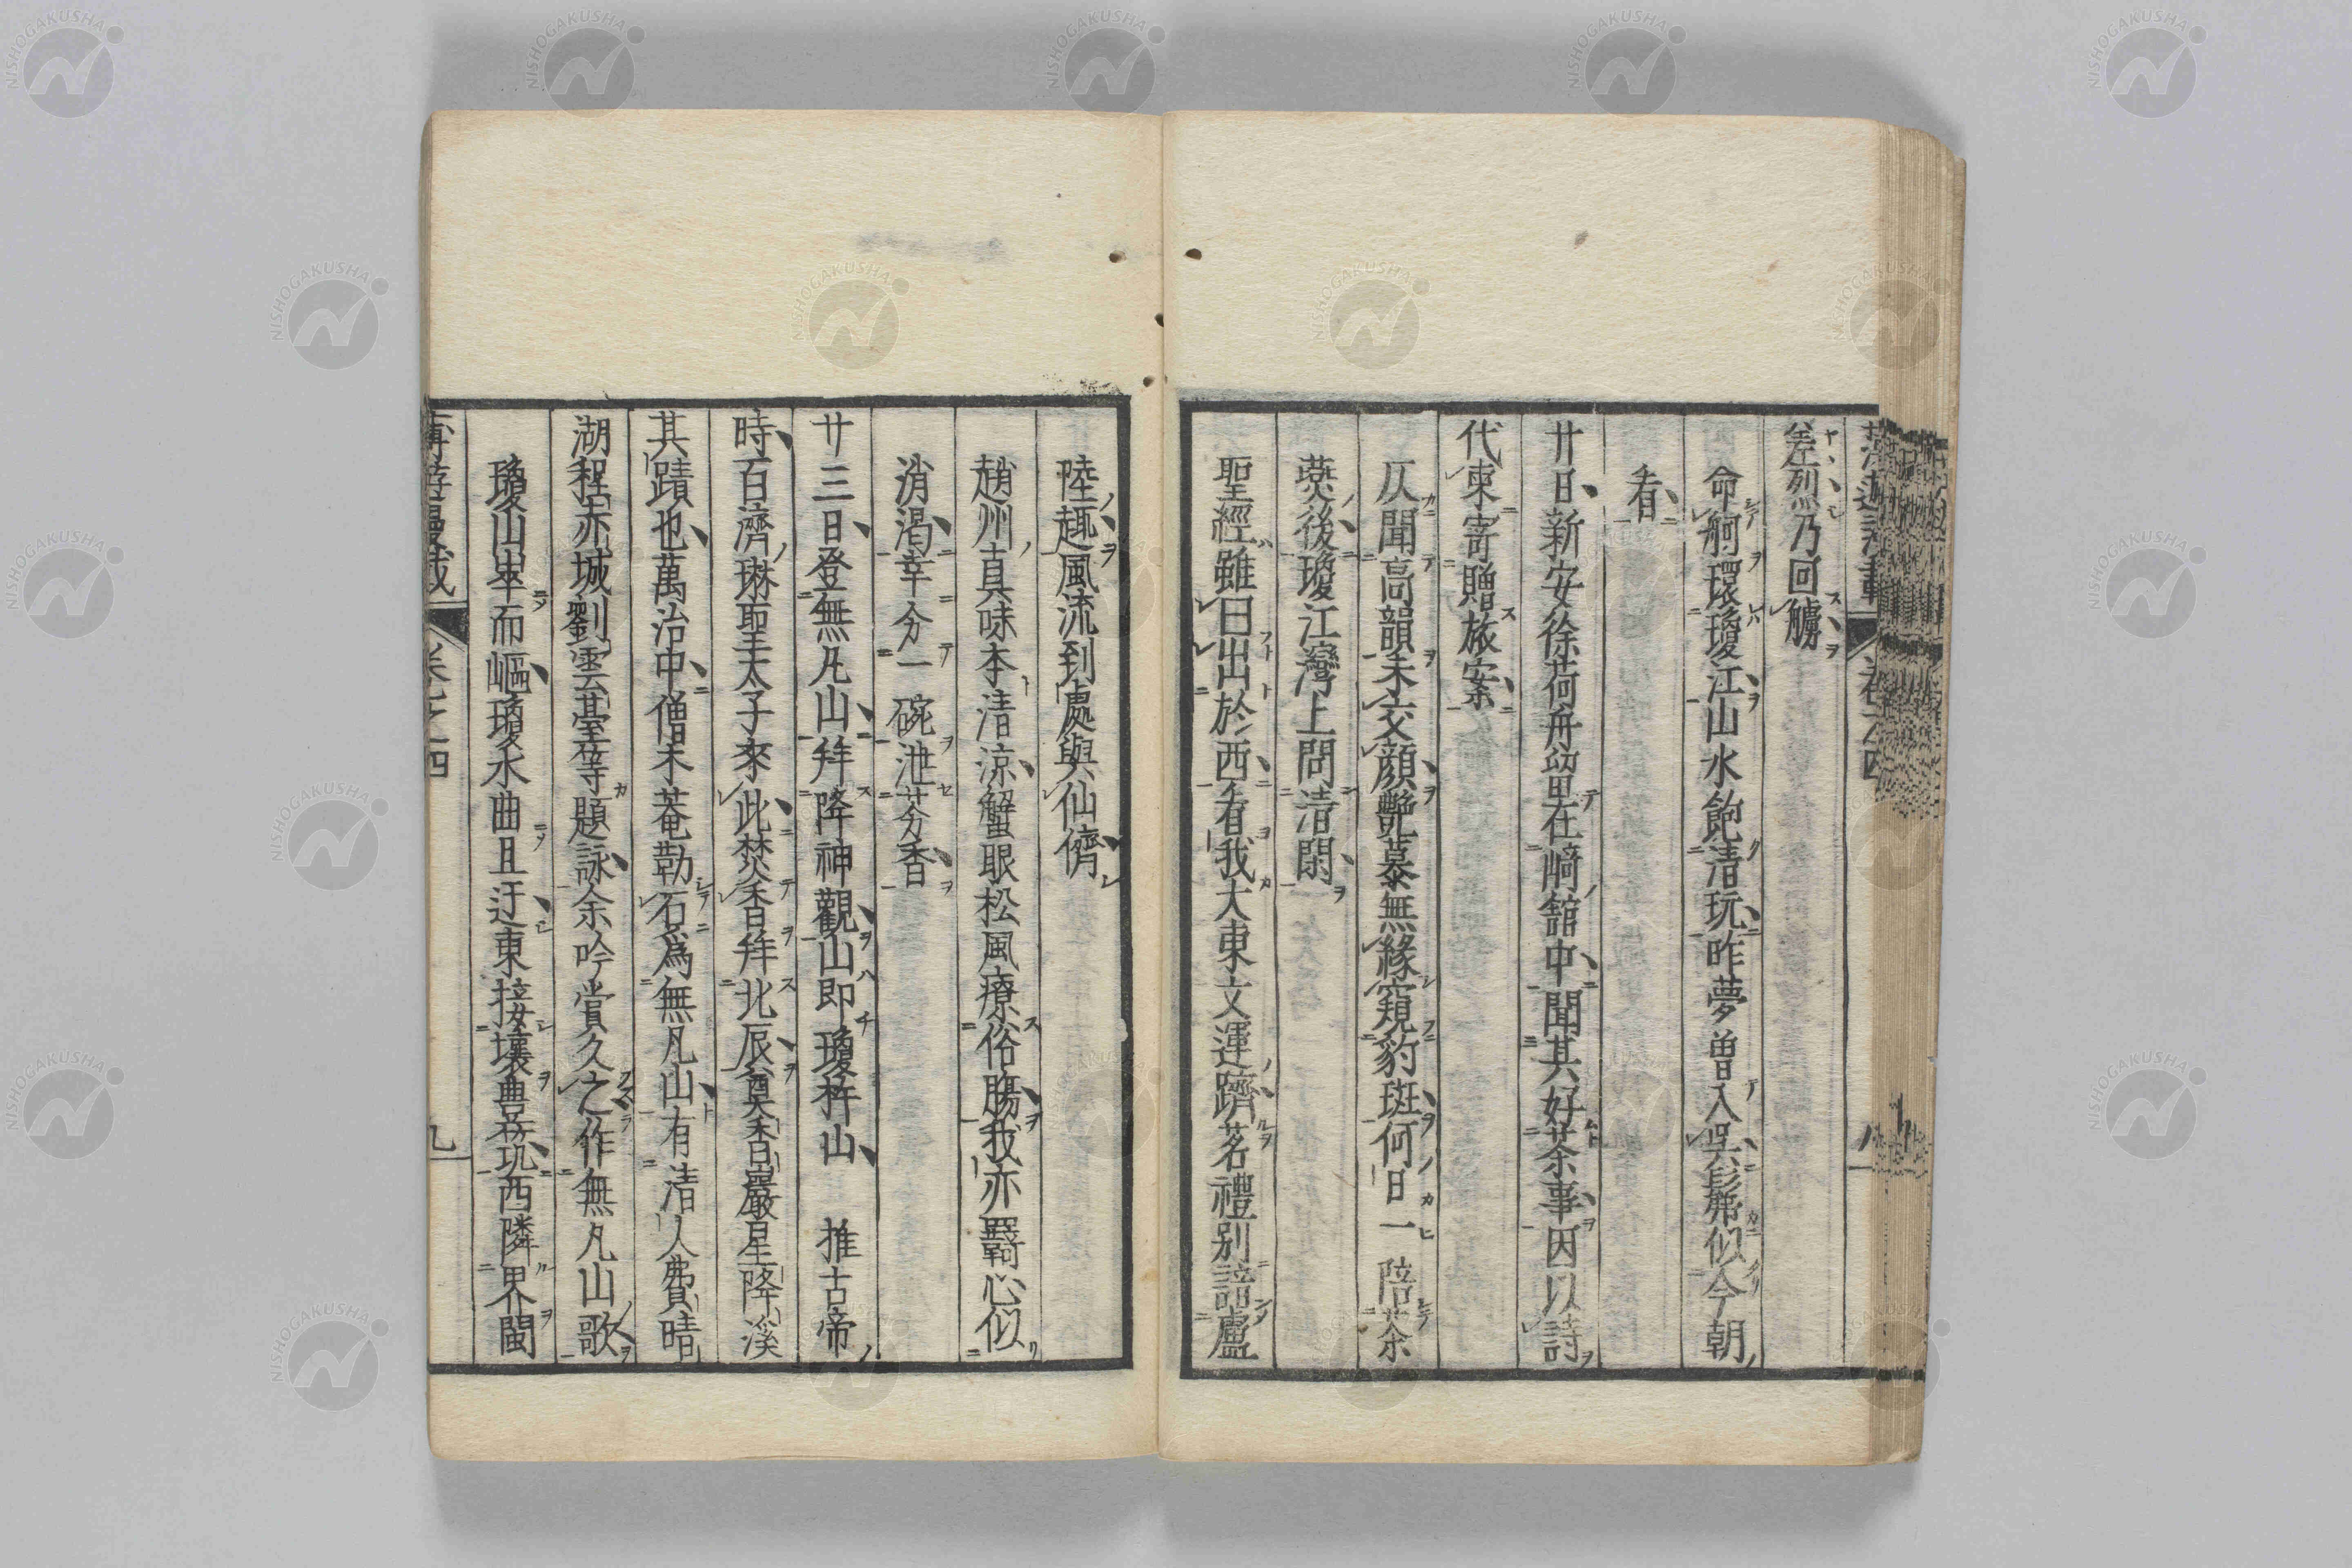 差烈乃回艣
命舸環瓊江山水飽清玩昨夢曽入呉髣似今朝
看
廿日新安徐荷舟㓜里在﨑舘中聞其好茶事因以詩
代柬寄贈旅案
仄聞高韻未交顔艶慕無緣窺豹斑何日一陪茶
䕸後瓊江灣上問清閑
聖經雖曰出於西看我大東文運躋茗禮别諳盧
陸趣風流到處與仙儕
趙州真味本清涼蟹眼松風療俗膓我亦羇心似
消渇幸分一碗泄芬香
廿三日登無凡山拜降神觀山即瓊杵山 推古帝
時百濟琳聖太子來此焚香拜北辰奠香巖星降溪
其蹟也萬治中僧禾菴勒石爲無凡山有清人費晴
湖程赤城劉雲䑓等題詠余吟賞久之作無凡山歌
瓊山崒而嶇瓊水曲且迂東接壤㒷善玧西隣界閩
卷之四
九